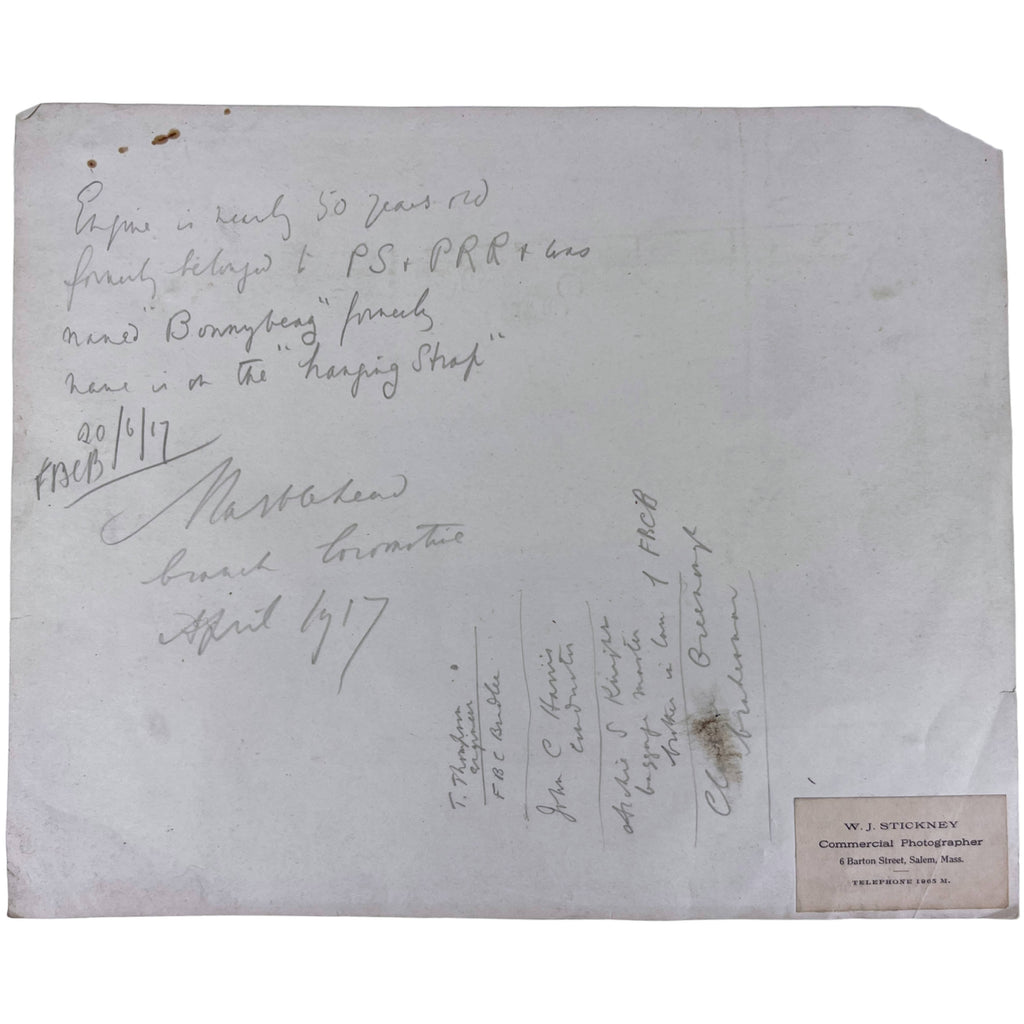 Engine is nearly 50 years old
formerly belonged to PS + PRR + was
named "Bonnybeag" formerly
name is on the "hanging Strap"
20/6/17
FBCB
Marblehead
branch locomotive
April 1917
T. Thompson
engineer
FBC
John C Harris
conductor
S
baggage master
brother in law of FBCB
Greenough
brakeman
W. J. STICKNEY
Commercial Photographer
6 Barton Street, Salem, Mass.
TELEPHONE 1965 M.